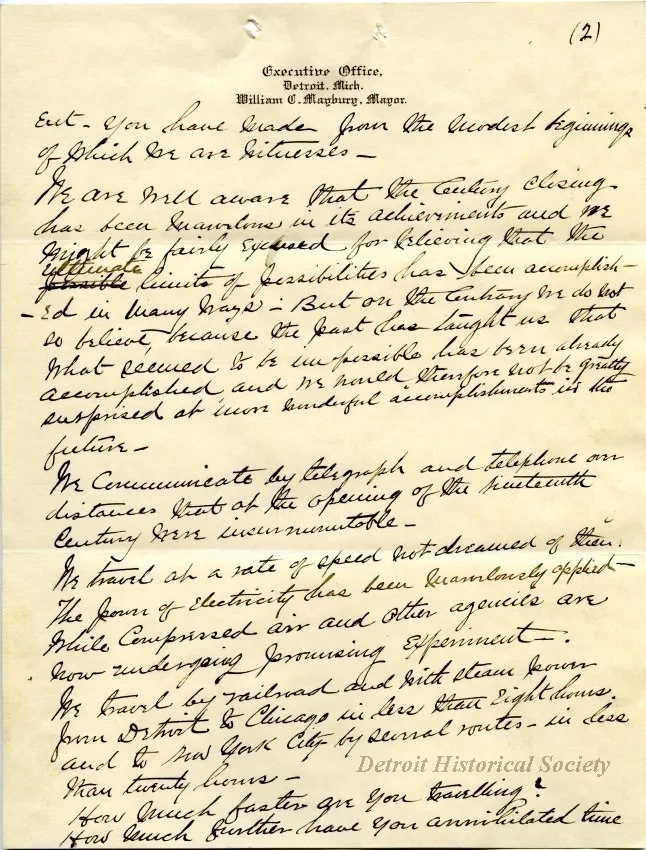 (2)
Executive Office,
Detroit, Mich.
William C. Maybury, Mayor.
Ent - You have made from the modest beginnings
of which we are witnesses -
We are well aware that the Century closing
has been marvelous in its achievements and we
might be fairly excused for believing that the
ultimate
possible limits of possibilities has been accomplish-
- ed in many ways - But on the Contrary we do not
so believe, because the past has taught us that
what seemed to be impossible has been already
accomplished and we would therefore not be greatly
surprised at more wonderful accomplishments in the
future -
We Communicate by telegraph and telephone over
distances that at the opening of the Nineteenth
Century were insurmountable -
We travel at a rate of speed not dreamed of then.
The power of Electricity has been marvelously applied -
While Compressed air and other agencies are
now undergoing promising Experiment -.
We travel by railroad and with steam power
from Detroit to Chicago in less than Eight hours.
and to New York City by several routes - in less
than twenty hours -
How much faster are you travelling?
How much further have you annihilated time
Detroit Historical Society